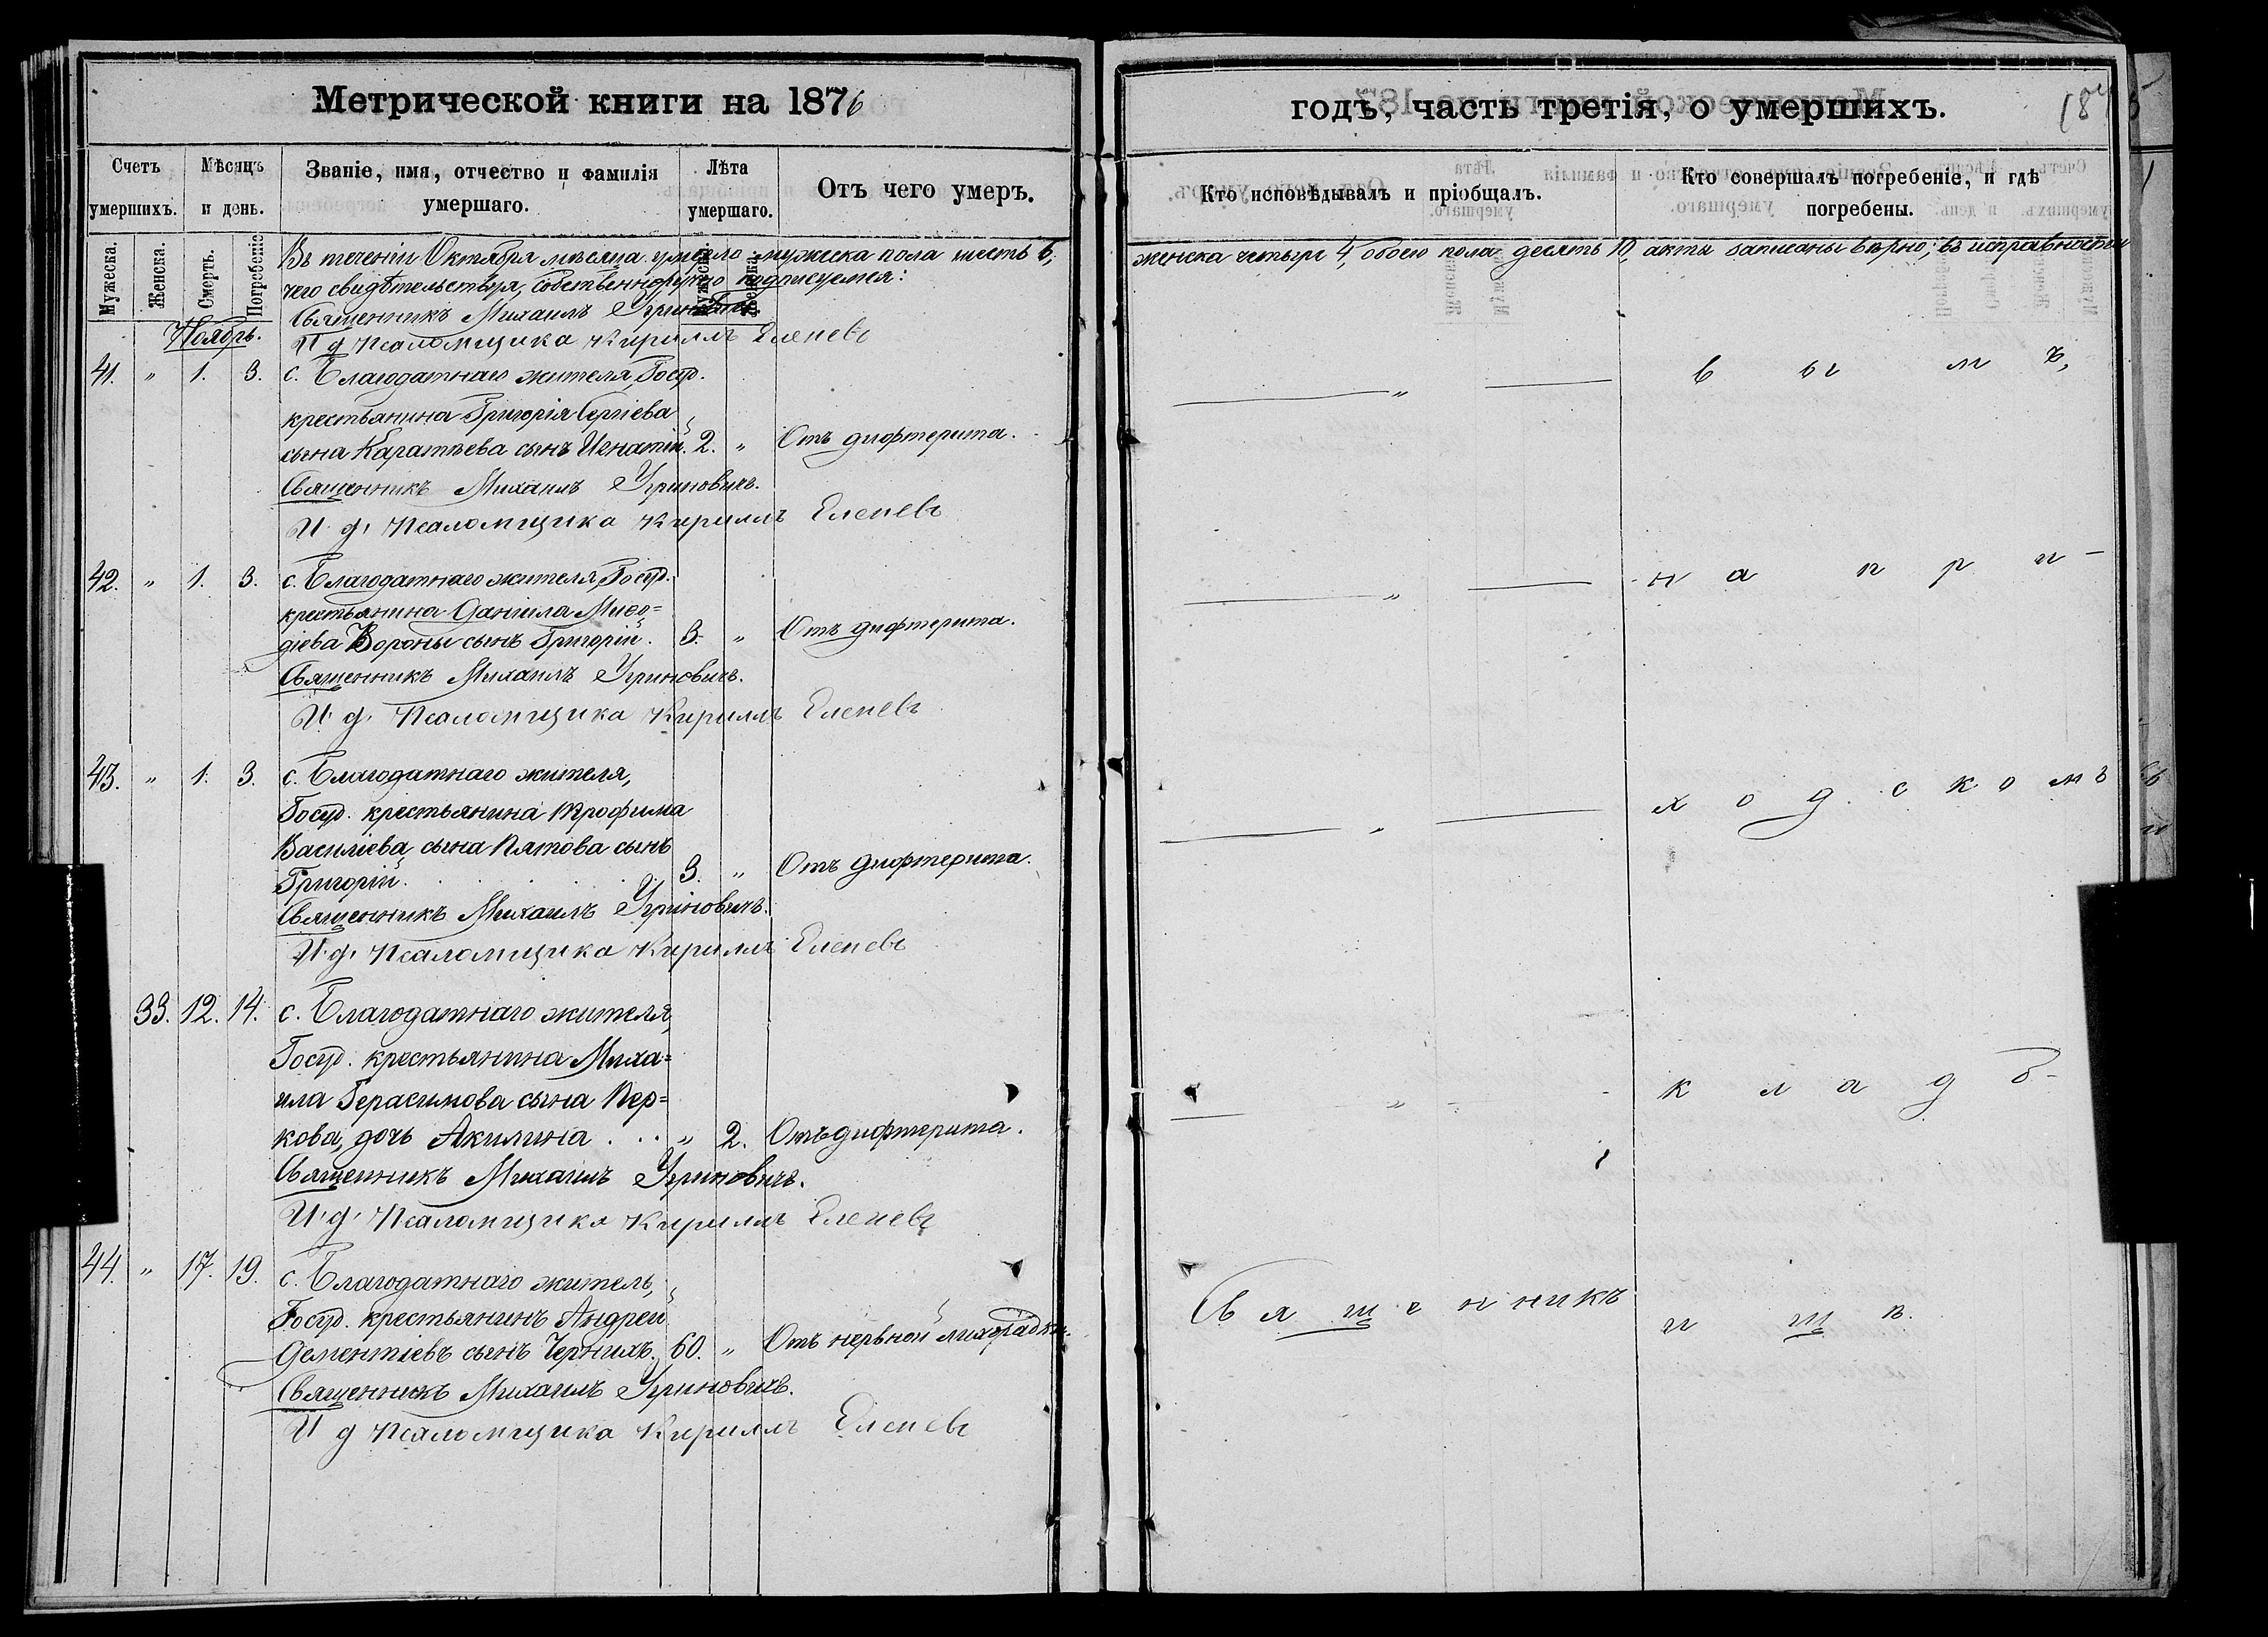 Метрической книги на 1876
годъ, часть третія, о умершихъ.
Счетъ умершихъ.
Мѣсяцъ и день.
Званіе, имя, отчество и фамилія умершаго.
Лѣта умершаго.
Отъ чего умеръ.
Кто исповѣдывалъ и пріобщалъ.
Кто совершалъ погребеніе, и гдѣ погребены.
Мужеска.
Женска.
Смерть.
Погребеніе
Мужеска.
Женска.
Въ теченіи Октября мѣсяца умерло мужеска пола шесть 6,
женска четыри 4, обоего пола десять 10, акты записаны вѣрно; въ исправности
чего свидѣтельствуя, собственноручно подписуемся:
Священникъ Михаилъ Угриновичъ.
И д Псаломщика Кириллъ Еленевъ
Ноябрь.
41. " 1. 3. с. Благодатнаго жителя, Госуд.
крестьянина Григорія Сергіева
сына Каратѣева сынъ Игнатій. 2. " Отъ дифтерита.
Священникъ Михаилъ Угриновичъ.
И. д. Псаломщика Кириллъ Еленевъ
42. " 1. 3. с. Благодатнаго жителя, Госуд.
крестьянина Даніила Меѳо=
діева Вороны сынъ Григорій. 3. " Отъ дифтерита.
Священникъ Михаилъ Угриновичъ.
И. д. Псаломщика Кириллъ Еленевъ
43. " 1. 3. с. Благодатнаго жителя,
Госуд. крестьянина Трофима
Василіева сына Пятова сынъ
Григорій. 3. " Отъ дифтерита.
Священникъ Михаилъ Угриновичъ.
И. д. Псаломщика Кириллъ Еленевъ
33. 12. 14. с. Благодатнаго жителя,
Госуд. крестьянина Миха=
ила Герасимова сына Пер=
кова, дочь Акилина . . . " 2. Отъ дифтерита.
Священникъ Михаилъ Угриновичъ.
И. д. Псаломщика Кириллъ Еленевъ
44. " 17. 19. с. Благодатнаго житель,
Госуд. крестьянинъ Андрей
Дементіевъ сынъ Черныхъ. 60. " Отъ нервной лихорадки.
Священникъ Михаилъ Угриновичъ.
И д Псаломщика Кириллъ Еленевъ
"
"
"
"
Священникъ
в ы м ъ,
н а п р и -
х о д с к о м ъ
к л а д б -
и щ ѣ.